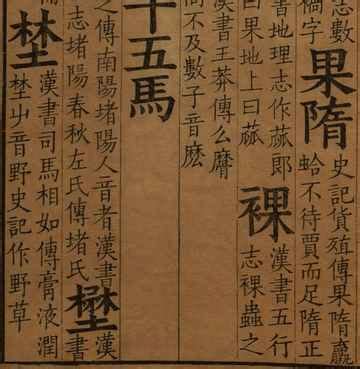 志數
字
果隋
史記貨殖傳果隋蠃
蛤不待賈而足隋正
書地理志作蓏郎
曰果地上曰蓏
裸
漢書五行
志裸蟲之
漢書王莽傳么麿
不及數子音麽
十五馬
之傳南陽堵陽人音者漢書
志堵陽春秋左氏傳堵氏
壄
漢
書
埜
漢書司馬相如傳膏液潤
埜屮音野史記作野草